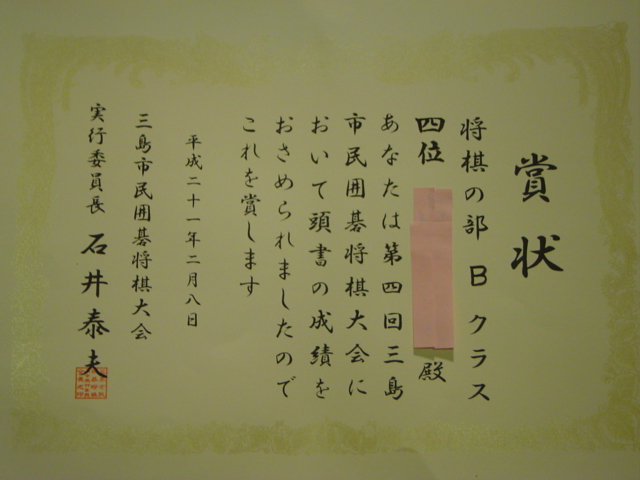 賞状
将棋の部 Bクラス
四位 殿
あなたは第四回三島
市民囲碁将棋大会に
おいて頭書の成績を
おさめられましたので
これを賞します
平成二十一年二月八日
三島市民囲碁将棋大会
実行委員長 石井泰夫